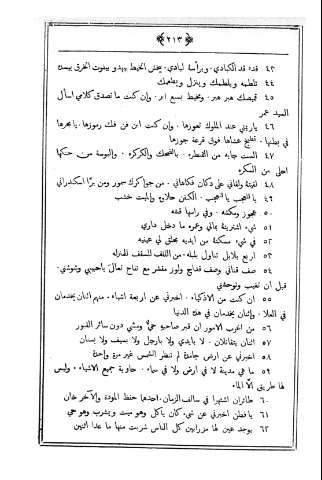 ﴿٢١٣﴾
٤٣ قده قد الكبادي. وبرأسه لبادي. يمشي الخيط بيهدو بيفوت الخرق بيسده
٤٤ تلطيه ويلطمك وينزل ويطعمك
٤٥ قميصك هبر هبر. ومخيط بسبع ابر. وإن كنت ما تصدق كلامي اسأل
السيد عمر
٤٦ ياريتني عند الملوك تعوزها. وإن كنت ابن فن فك رموزها. يا بحرها
في بطنها. قطيخ عشاها فوق قرعة جوزها
٤٧ الست جايه من القنطره. بالضحك والكركره. والبوسة من حنكها
احلى من السكره
٤٨ لقيته ولقاني على دكان فكهاني. من جوا كرك سمور ومن برا اسكندراني
٤٩ يا للعجب يا للعجب. الكفن حلاوه والميت خشب
٥٠ عجوز ومكفنه. وفي راسها قفنه
٥١ شيء اشتريته بمالي وعمره ما دخل داري
٥٢ في شيء مسكته من ايديه بحلق لي عينيه
٥٣ اربع بلابل تناول بلبله. من الثقف للسقف للمنزله
٥٤ صف قناني وصف فناج ولوز مقشر مع تفاح تعالَ ياحبيبي وشوشني.
قبل ان تغيب وتوحشني
٥٥ ان كنت من الاذكياء. اخبرني عن اربعة اشياء. منهم اثنان يخدمان
في العلا. واثنان يخدمان في هذه الدنيا
٥٦ من اغرب الامور ان قبر صاحبه حيٌّ ومشى دون سائر القبور
٥٧ اثنان يتقاتلان. لا بايدي ولا بارجل ولا بسيف ولا بسنان
٥٨ اخبرني عن ارض جامدة لم تنظر الشمس غير مرة واحدة
٥٩ ما هي مدينة لا في ارض ولا في سماء. حاوية جميع الاشياء. وليس
لها طريق الَّا الماء
٦٠ طائران اشتهرا في سالف الزمان. احدهما حفظ المودة والآخر خان
٦١ يافطن اخبرني عن شيء كان ياكل وهو ميت ويشرب وهو حي
٦٢ يوجد عين لها مزرابين كل الناس شربت منها ما عدا اثنين